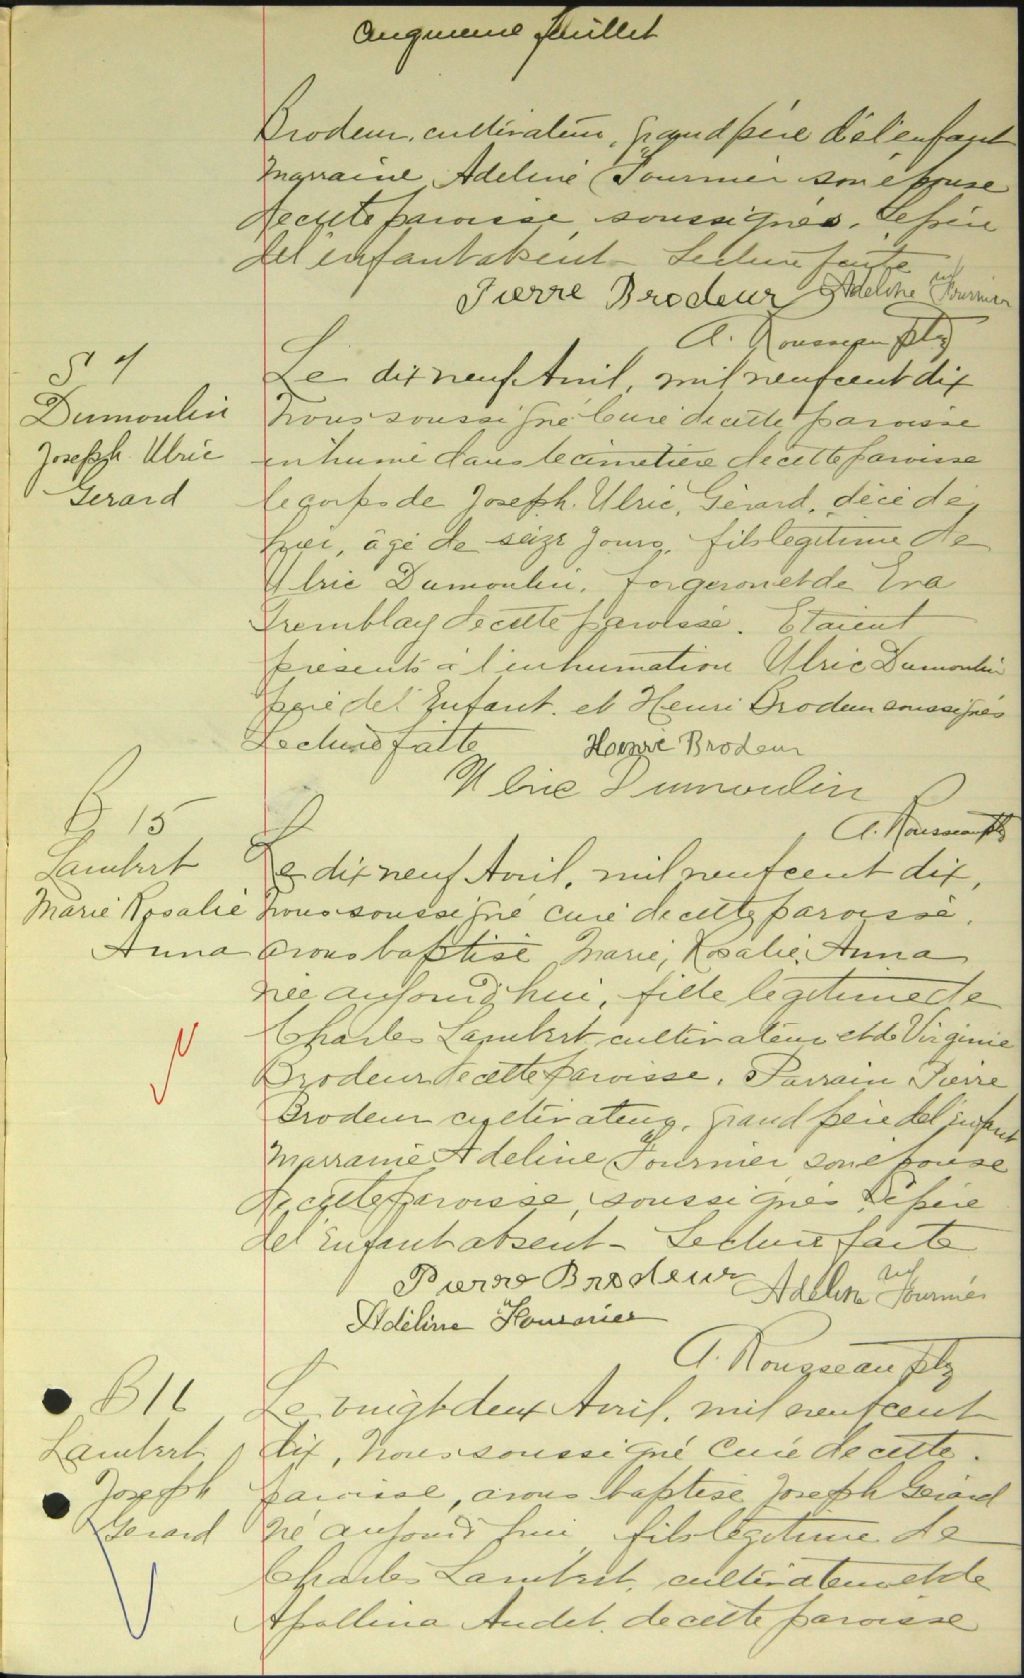 cinquième feuillet
Brodeur, cultivateur, grand père de l'enfant
Marraine Adeline Fournier son épouse
de cette paroisse, soussignés. Le père
de l'enfant absent – Lecture faite
Pierre Brodeur Adeline Fournier
A. Rousseau Ptre
S 7
Dumoulin
Joseph Ulric
Gerard
Le dix neuf Avril, mil neuf cent dix
nous soussigné Curé de cette paroisse
inhumé dans le cimetière de cette paroisse
le corps de Joseph, Ulric, Gérard, décédé
hier, âgé de seize jours, fils légitime de
Ulric Dumoulin, forgeron et de Eva
Tremblay de cette paroisse. Etaient
présents à l'inhumation Ulric Dumoulin
père de l'Enfant. et Henri Brodeur soussignés
Lecture faite Henri Brodeur
Ulric Dumoulin
A. Rousseau Ptre
B 15
Lambert
Marie Rosalie
Anna
Le dix neuf Avril, mil neuf cent dix,
nous soussigné curé de cette paroisse,
avons baptisé Marie, Rosalie, Anna
née aujourd'hui, fille légitime de
Charles Lambert cultivateur et de Virginie
Brodeur de cette paroisse. Parrain Pierre
Brodeur cultivateur, grand père de l'enfant
Marraine Adeline Fournier son épouse
de cette paroisse, soussignés. Le père
de l'Enfant absent – Lecture faite
Pierre Brodeur Adeline Fournier
Adéline Fournier
A. Rousseau Ptre
B 16
Lambert
Joseph
Gerard
Le vingt deux Avril, mil neuf cent
dix, nous soussigné Curé de cette
paroisse, avons baptisé Joseph Gérard
né aujourd'hui, fils légitime de
Charles Lambert, cultivateur et de
Apollina Audet, de cette paroisse